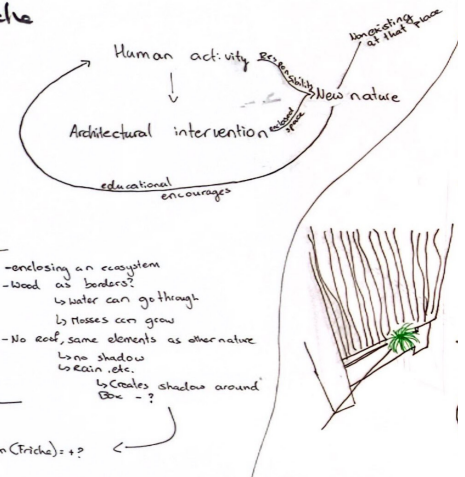 che
Human activity
Responsibility
Non existing
at that place
New nature
Architectural intervention
enclosed
space
educational
encourages
-enclosing an ecosystem
-Wood as borders?
↳ Water can go through
↳ Mosses can grow
-No Roof, same elements as other nature
↳ no shadow
↳ Rain, etc.
↳ Creates shadow around
Box - ?
n (Friche) = + ?